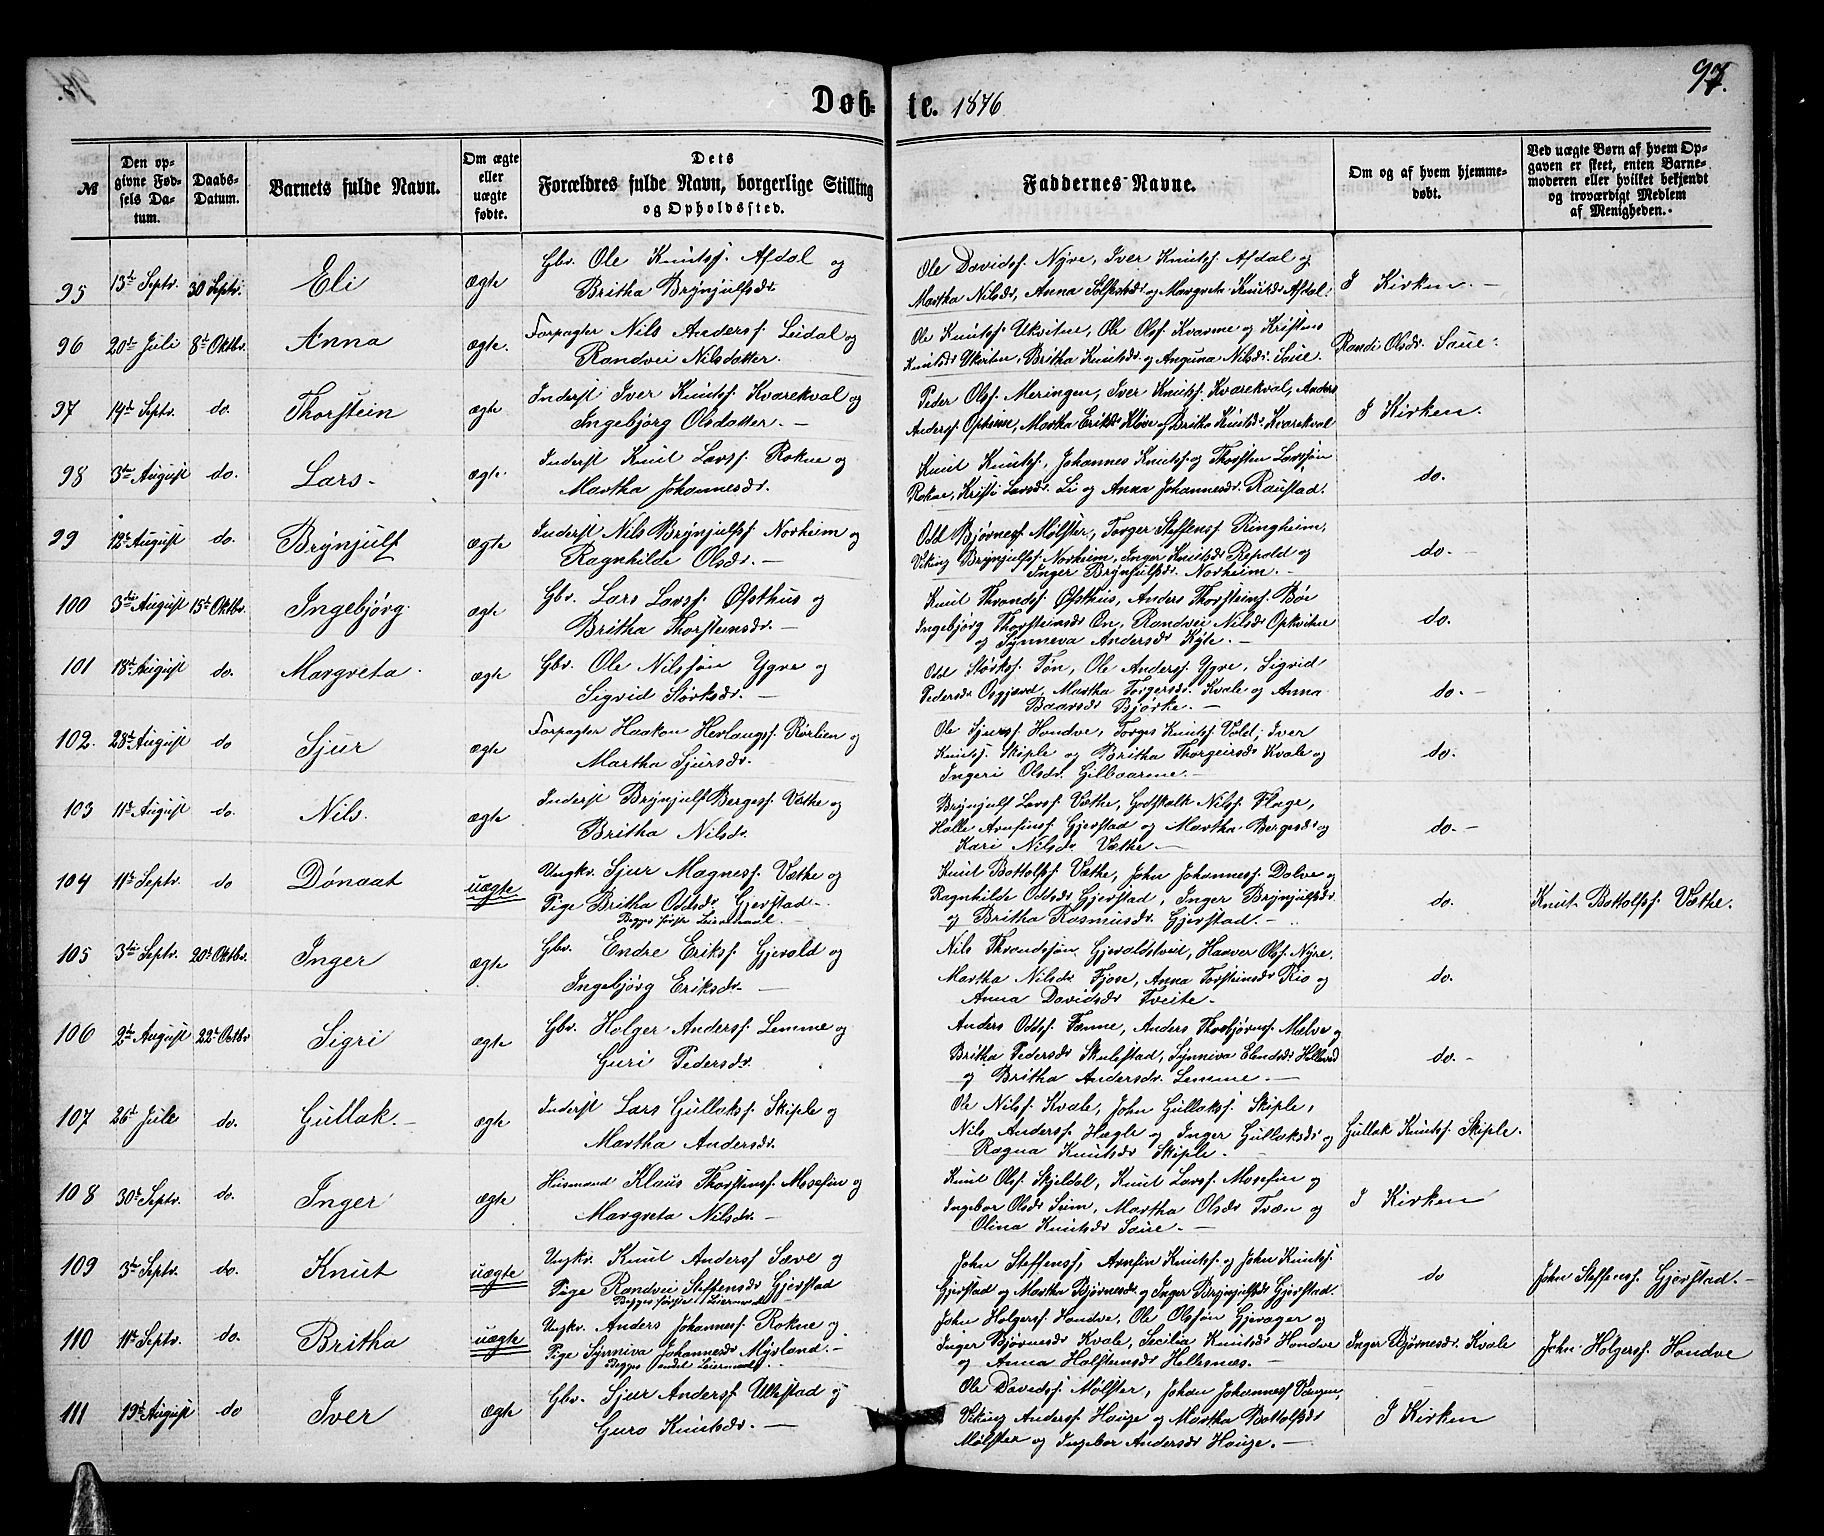 97.
Døb- te. 1876
№
Den opgivne Fødsels Datum.
Daabs-Datum.
Barnets fulde Navn.
Om ægte eller uægte fødte.
Dets Forældres fulde Navn, borgerlige Stilling og Opholdssted.
Faddernes Navne.
Om og af hvem hjemmedøbt.
Ved uægte Børn af hvem Opgaven er skeet, enten Barnemoderen eller hvilket bekjendt og troværdigt Medlem af Menigheden.
95 13de Septr. 30 Septr. Eli ægte
Gbr. Ole Knutss. Afdal og
Britha Brynjulfsdr
Ole Davidss. Nyre, Iver Knutss. Afdal og
Martha Nilsdr, Anna Sølfestsdr og Margreta Knutsdr Afdal.
I Kirken. —
96 20de Juli 8de Oktbr. Anna ægte.
Forpagter Nils Anderss. Leidal og
Randvei Nilsdatter.
Ole Knutss. Ukvitne, Ole Olss. Kvarme og Kristens
Knutsdr Ukvitne, Britha Knutsdr. og Anguna Nilsdr. Saue.
Randi Olsdr. Saue.
97 14de Septr. do. Thorstein ægte
Inderst Iver Knutss. Kvarekval og
Ingebjørg Olsdatter. —
Peder Olss. Meringen, Iver Knutss. Kvarekval, Anders
Anderss. Opheim, Martha Eriksdr Kløve og Britha Knutsdr. Kvarekval
I Kirken.
98 3die August do. Lars. ægte.
Inderst Knut Larss. Rokne og
Martha Johannesdr.
Knut Knutss., Johannes Knutss. og Thorsten Larssøn
Rokne, Kristi Larsdr. Li og Anna Johannesdr. Raustad.
do.
99 12te August do. Brynjulf ægte
Inderst Nils Brynjulfss. Norheim og
Ragnhilde Olsdr. —
Odd Bjørness. Mølster, Torger Steffenss. Ringheim,
Viking Brynjulfss. Norheim, Inger Knutsdr Repold og
Inger Brynjulfsdr. Norheim. —
do. —
100 3die August 15de Oktbr. Ingebjørg. ægte
Gbr. Lars Larss. Øfsthus og
Britha Thorsteinsdr. —
Knut Throndss. Øfsthus, Anders Thorsteinss. Bøe
Ingebjørg Thorsteinsdr Øn, Randvei Nilsdr Opkvitne
og Synneva Andersdr Kyte. —
do.
101 18de August do. Margreta. ægte
Gbr. Ole Nilssøn Ygre og
Sigrid Størksdr. —
Odd Størkss. Tøn, Ole Anderss. Ygre, Sigrid
Pedersdr Osgjerd, Martha Torgersdr. Kvale og Anna
Baarsdr Bjørke. —
do. —
102. 28de August do Sjur ægte
Forpagter Haakon Herlaugss. Rørlien og
Martha Sjursdr. —
Ole Sjurss. Hondve, Torges Knutss. Vold, Iver
Knutss. Skiple og Britha Thorgeirsdr Kvale og
Ingeri Olsdr. Gilbaarme. —
do.
103 11te August do. Nils. ægte
Inderst Brynjulf Bergess. Væthe og
Britha Nilsdr.
Brynjulf Larss. Væthe, Godskalk Nilss. Flage,
Halle Arnfinss. Gjerstad og Martha Bergesdr og
Kari Nilsdr Væthe. —
do. —
104 11te Septr. do Donaat uægte
Ungkr. Sjur Magness. Væthe og
Pige Britha Oddsdr. Gjerstad. —
Begges første Leiermaal. —
Knut Bottolfss. Væthe, John Johanness. Dolve og
Ragnhilde Oddsdr Gjerstad, Inger Brynjulfsdr
og Britha Rasmusdr. Gjerstad. —
do.
Knut Bottolfss. Væthe.
105 3die Septr. 20de Oktbr. Inger ægte
Gbr. Endre Erikss. Gjerald og
Ingebjørg Eriksdr. —
Nils Throndssøn Gjeraldstveit, Haaver Olss. Nyre,
Martha Nilsdr Fjose, Anna Torsteinsdr Rio og
Anna Davidsdr Tveite. —
do.
106 2den August 22de Octbr Sigri ægte
Gbr. Holger Anderss. Lemme og
Guri Pedersdr.
Anders Oddss. Fenne, Anders Thorbjørnss. Mælve og
Britha Pedersdr Skulestad, Synniva Elendsdr
og Britha Andersdr. Lemme. —
do. —
107 26de Juli do. Gullak. — ægte
Inderst Lars Gullakss. Skiple og
Martha Andersdr.
Ole Nilss. Kvale, John Gullakss. Skiple,
Nils Anderss. Hægle og Inger Gullaksdr og
Ragna Knutsdr Skiple. —
Gullak Knutss. Skiple.
108 30te Septr. do. Inger ægte
Husmand Klaus Thorstenss. Mosefin og
Margreta Nilsdr. —
Knut Olss. Skjeldal, Knut Larss. Mosefin og
Ingebor Olsdr Seim, Martha Olsdr Tvæn og
Olina Knutsdr Saue. —
I Kirken
109 3die Septr. do. Knut uægte
Ungkr. Knut Anderss Sæve og
Pige Randvei Steffensdr Gjerstad
Begges første Leiermaal —
John Steffenss., Arnfin Knutss. og John Knutss.
Gjerstad og Martha Bjørnesdr og Inger Brynjulfsdr Gjerstad.
do
John Steffenss. Gjerstad. —
110 11te Septr. do. Britha uægte
Ungkr. Anders Johanness. Rokne og
Pige Synniva Johannesdr Myrland. —
Begges andet Leiermaal. —
John Holgerss. Hondve, Ole Olssøn Gjerager og
Inger Bjørnesdr Kvale, Secilia Knutsdr Hondve
og Anna Halstensdr Hellesnes. —
Inger Bjørnesdr. Kvale
John Holgerss. Hondve
111 19de August do Iver ægte
Gbr. Sjur Anderss Ullestad og
Guro Knutsdr. —
Ole Davidss. Mølster, Johan Johanness Vangen,
Viking Anderss. Hauge og Martha Bottolfsdr
Mølster og Ingebor Andersdr Hauge. —
I Kirken